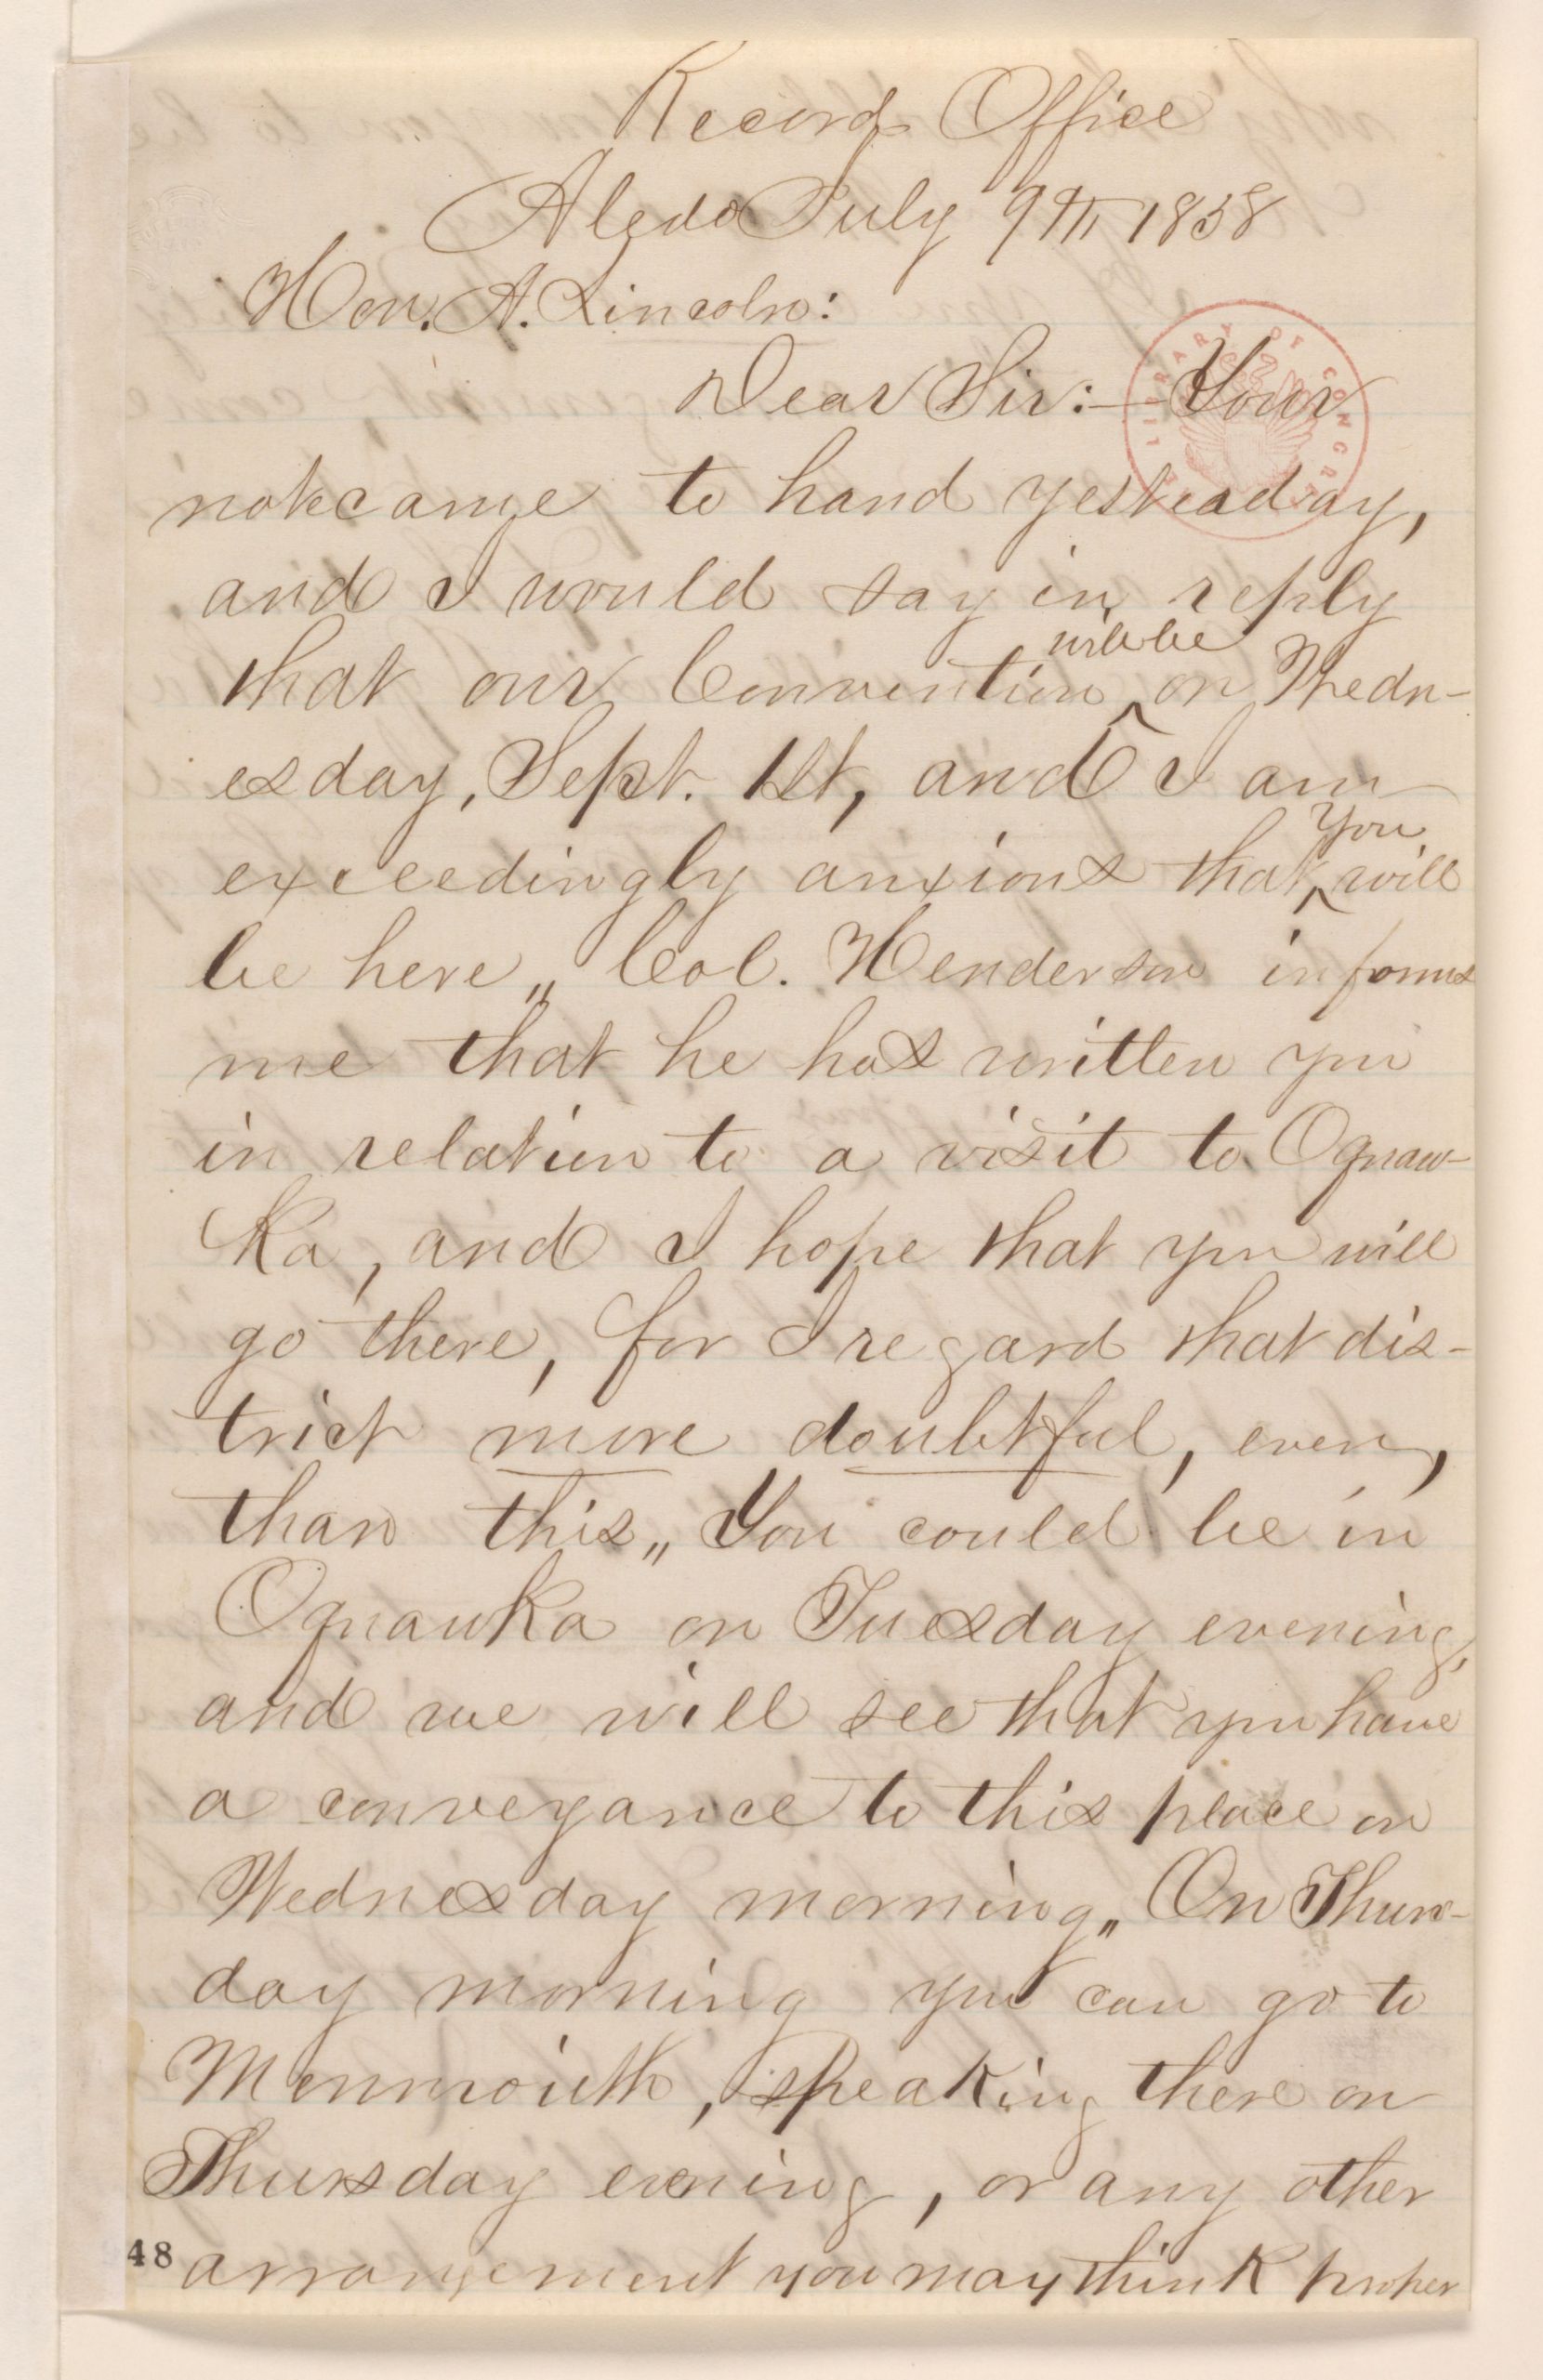 Record Office
Aledo July 9th 1858
Hon. A. Lincoln:
Dear Sir:— Your
note came to hand yesteaday,
and I would say in reply
that our Convention ^will be on Wedn-
esday, Sept. 1st, and I am
exceedingly anxious that ^you will
be here„ Col. Henderson informs
me that he has written you
in relation to a visit to Oquaw-
ka, and I hope that you will
go there, for I regard that dis-
trict more doubtful, even,
than this„ You could be in
Oquawka on Tuesday evening,
and we will see that you have
a conveyance to this place on
Wednesday morning„ On Thurs-
day morning you can go to
Monmouth, speaking there on
Thursday evening, or any other
arrangement you may think proper
48
LIBRARY OF CONGRESS